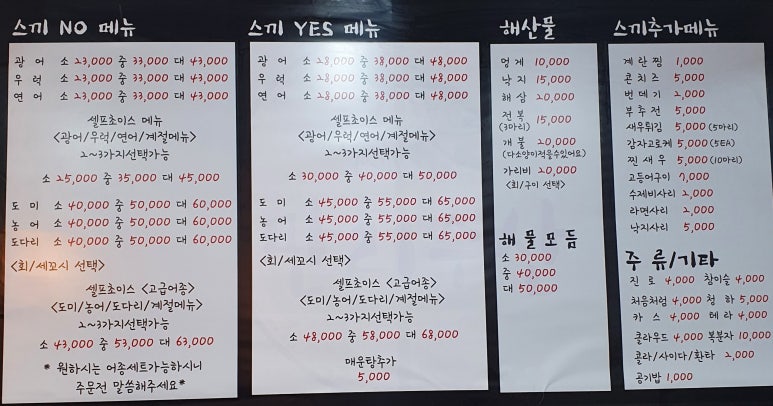 스끼 NO 메뉴
광 어 소 23,000 중 33,000 대 43,000
우 럭 소 23,000 중 33,000 대 43,000
연 어 소 23,000 중 33,000 대 43,000
셀프초이스 메뉴
<광어/우럭/연어/계절메뉴>
2~3가지선택가능
소 25,000 중 35,000 대 45,000
도 미 소 40,000 중 50,000 대 60,000
농 어 소 40,000 중 50,000 대 60,000
도다리 소 40,000 중 50,000 대 60,000
<회/세꼬시 선택>
셀프초이스 <고급어종>
<도미/농어/도다리/계절메뉴>
2~3가지선택가능
소 43,000 중 53,000 대 63,000
* 원하시는 어종세트가능하시니
주문전 말씀해주세요*
스끼 YES 메뉴
광 어 소 28,000 중 38,000 대 48,000
우 럭 소 28,000 중 38,000 대 48,000
연 어 소 28,000 중 38,000 대 48,000
셀프초이스 메뉴
<광어/우럭/연어/계절메뉴>
2~3가지선택가능
소 30,000 중 40,000 대 50,000
도 미 소 45,000 중 55,000 대 65,000
농 어 소 45,000 중 55,000 대 65,000
도다리 소 45,000 중 55,000 대 65,000
<회/세꼬시 선택>
셀프초이스 <고급어종>
<도미/농어/도다리/계절메뉴>
2~3가지선택가능
소 48,000 중 58,000 대 68,000
매운탕추가
5,000
해산물
멍 게 10,000
낙 지 15,000
해 삼 20,000
전 복 15,000
(3마리)
개 불 20,000
(다소양이적을수있어요)
가리비 20,000
<회/구이 선택>
해 물 모 듬
소 30,000
중 40,000
대 50,000
스끼추가메뉴
계 란 찜 1,000
콘 치 즈 5,000
번 데 기 2,000
부 추 전 5,000
새우튀김 5,000 (5마리)
감자고로케 5,000 (5EA)
찐 새 우 5,000 (10마리)
고등어구이 7,000
수제비사리 2,000
라면사리 2,000
낙지사리 5,000
주 류/기타
진 로 4,000 참이슬 4,000
처음처럼 4,000 청 하 5,000
카 스 4,000 테 라 4,000
클라우드 4,000 복분자 10,000
콜라/사이다/환타 2,000
공기밥 1,000